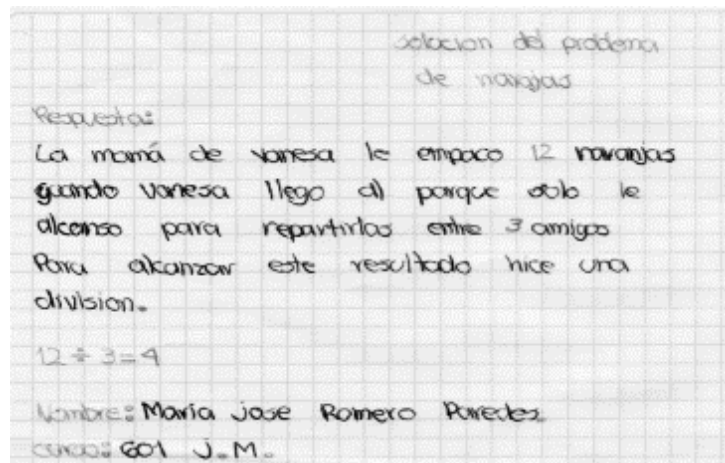 solocion del problema
de naranjas
Respuesta:
La mamá de vanesa le empaco 12 naranjas
guando vanesa llego al parque solo le
alcanso para repartirlas entre 3 amigos
Para alcanzar este resultado hice una
division.
12 ÷ 3 = 4
Nombre: Maria jose Romero Paredez
curso: 601 J.M.